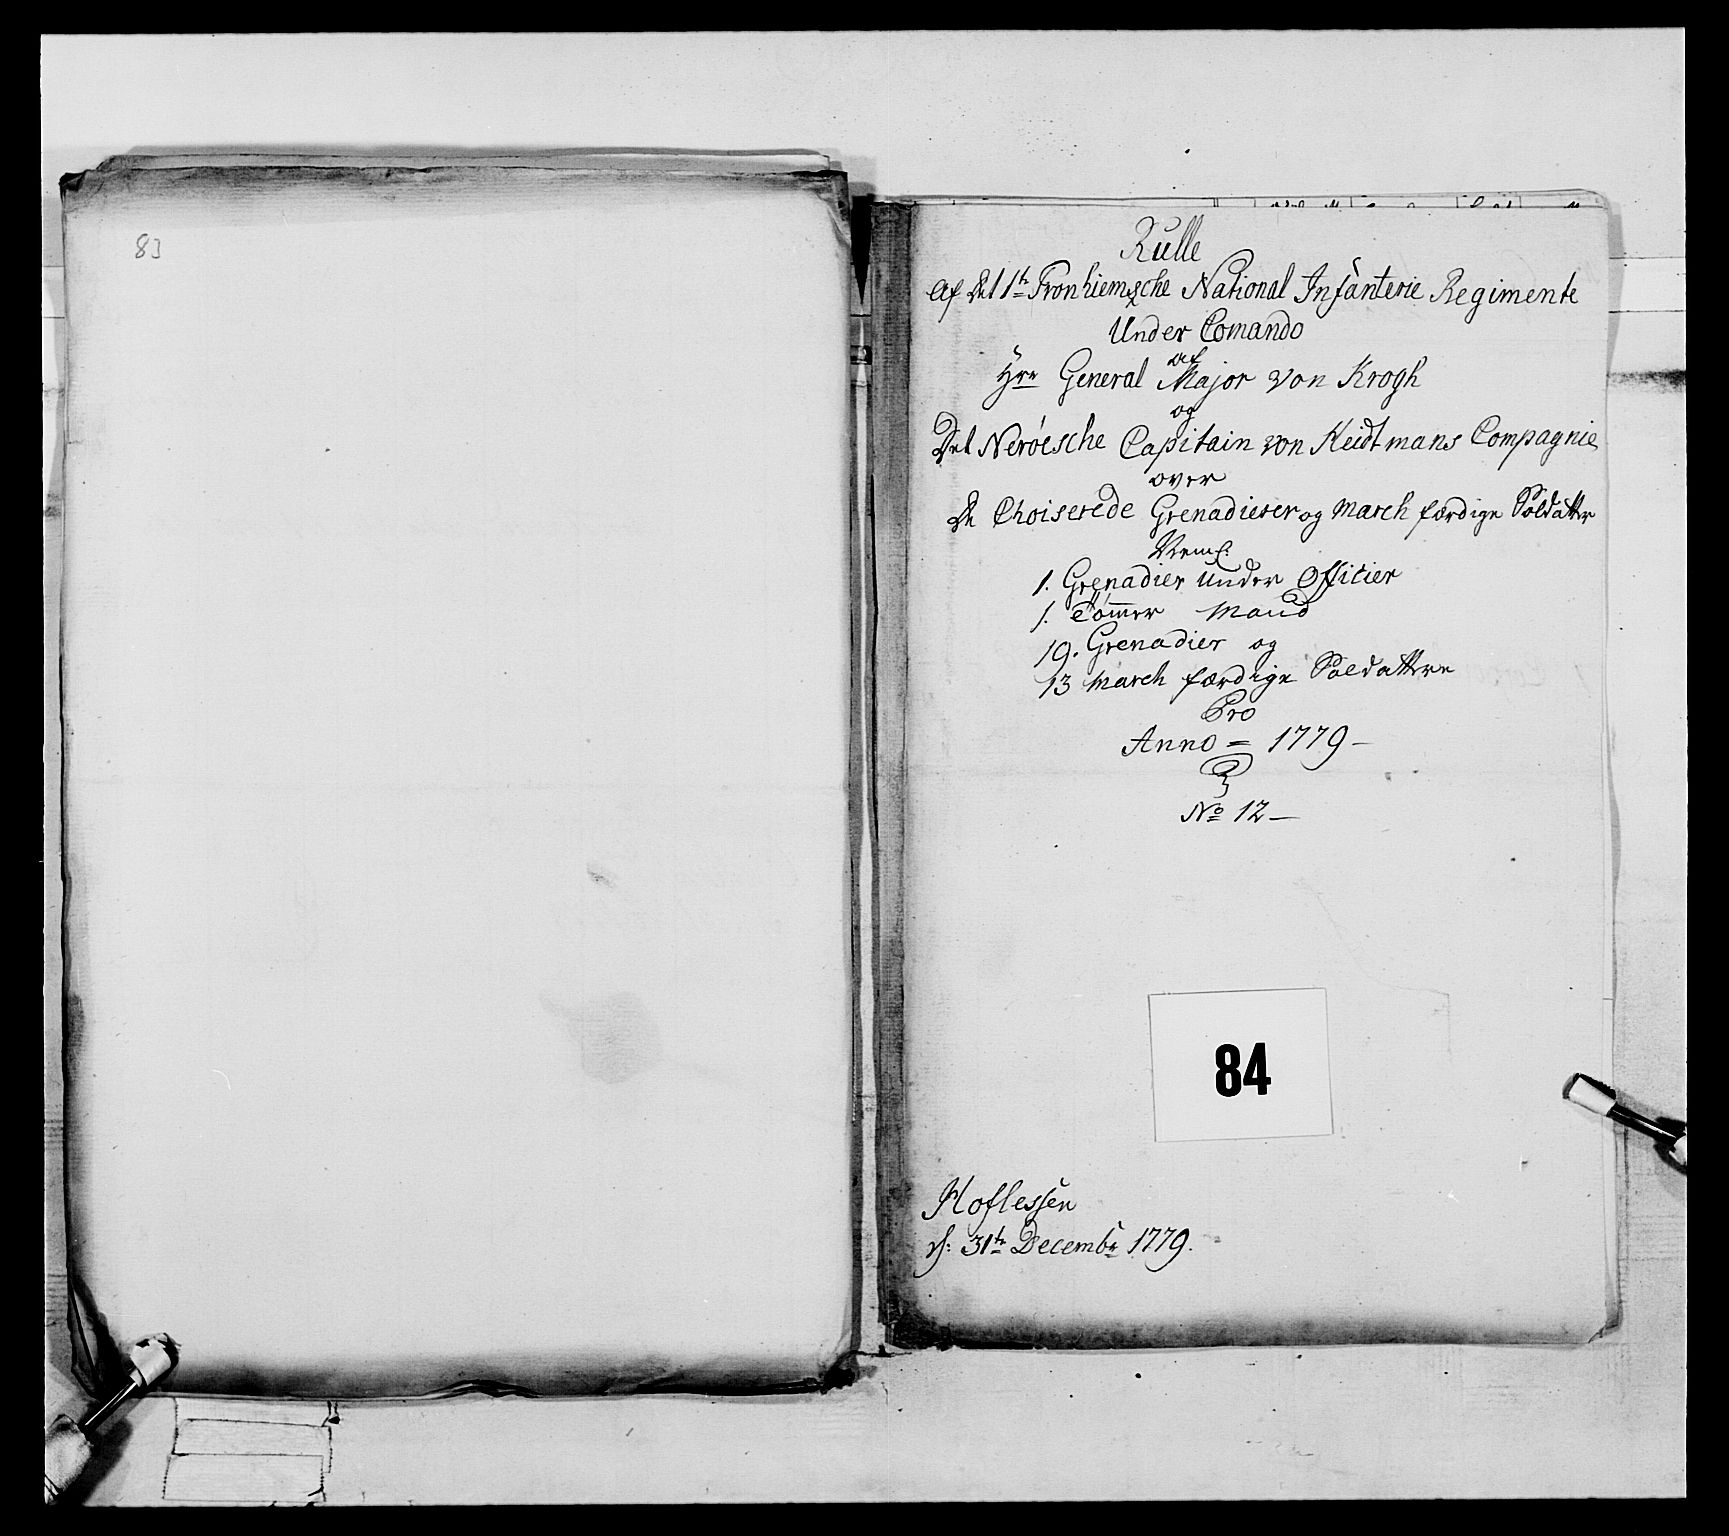 83
Rulle
Af Det 1te Tronhiemsche National Infanterie Regimente
Under Comando
af
Hrr General Major von Krogh
og
Det Nerøesche Capitain von Heidtmans Compagnie
over
De Choiserede Grenadierer og March færdige Soldatter
Neml:
1. Grenadier Under Officier
1. Tømmer Mand
19. Grenadier og
13 March færdige Soldattere
Pro
Anno = 1779 -
No 12 -
84
Hoflessen
d: 31te Decembr 1779.